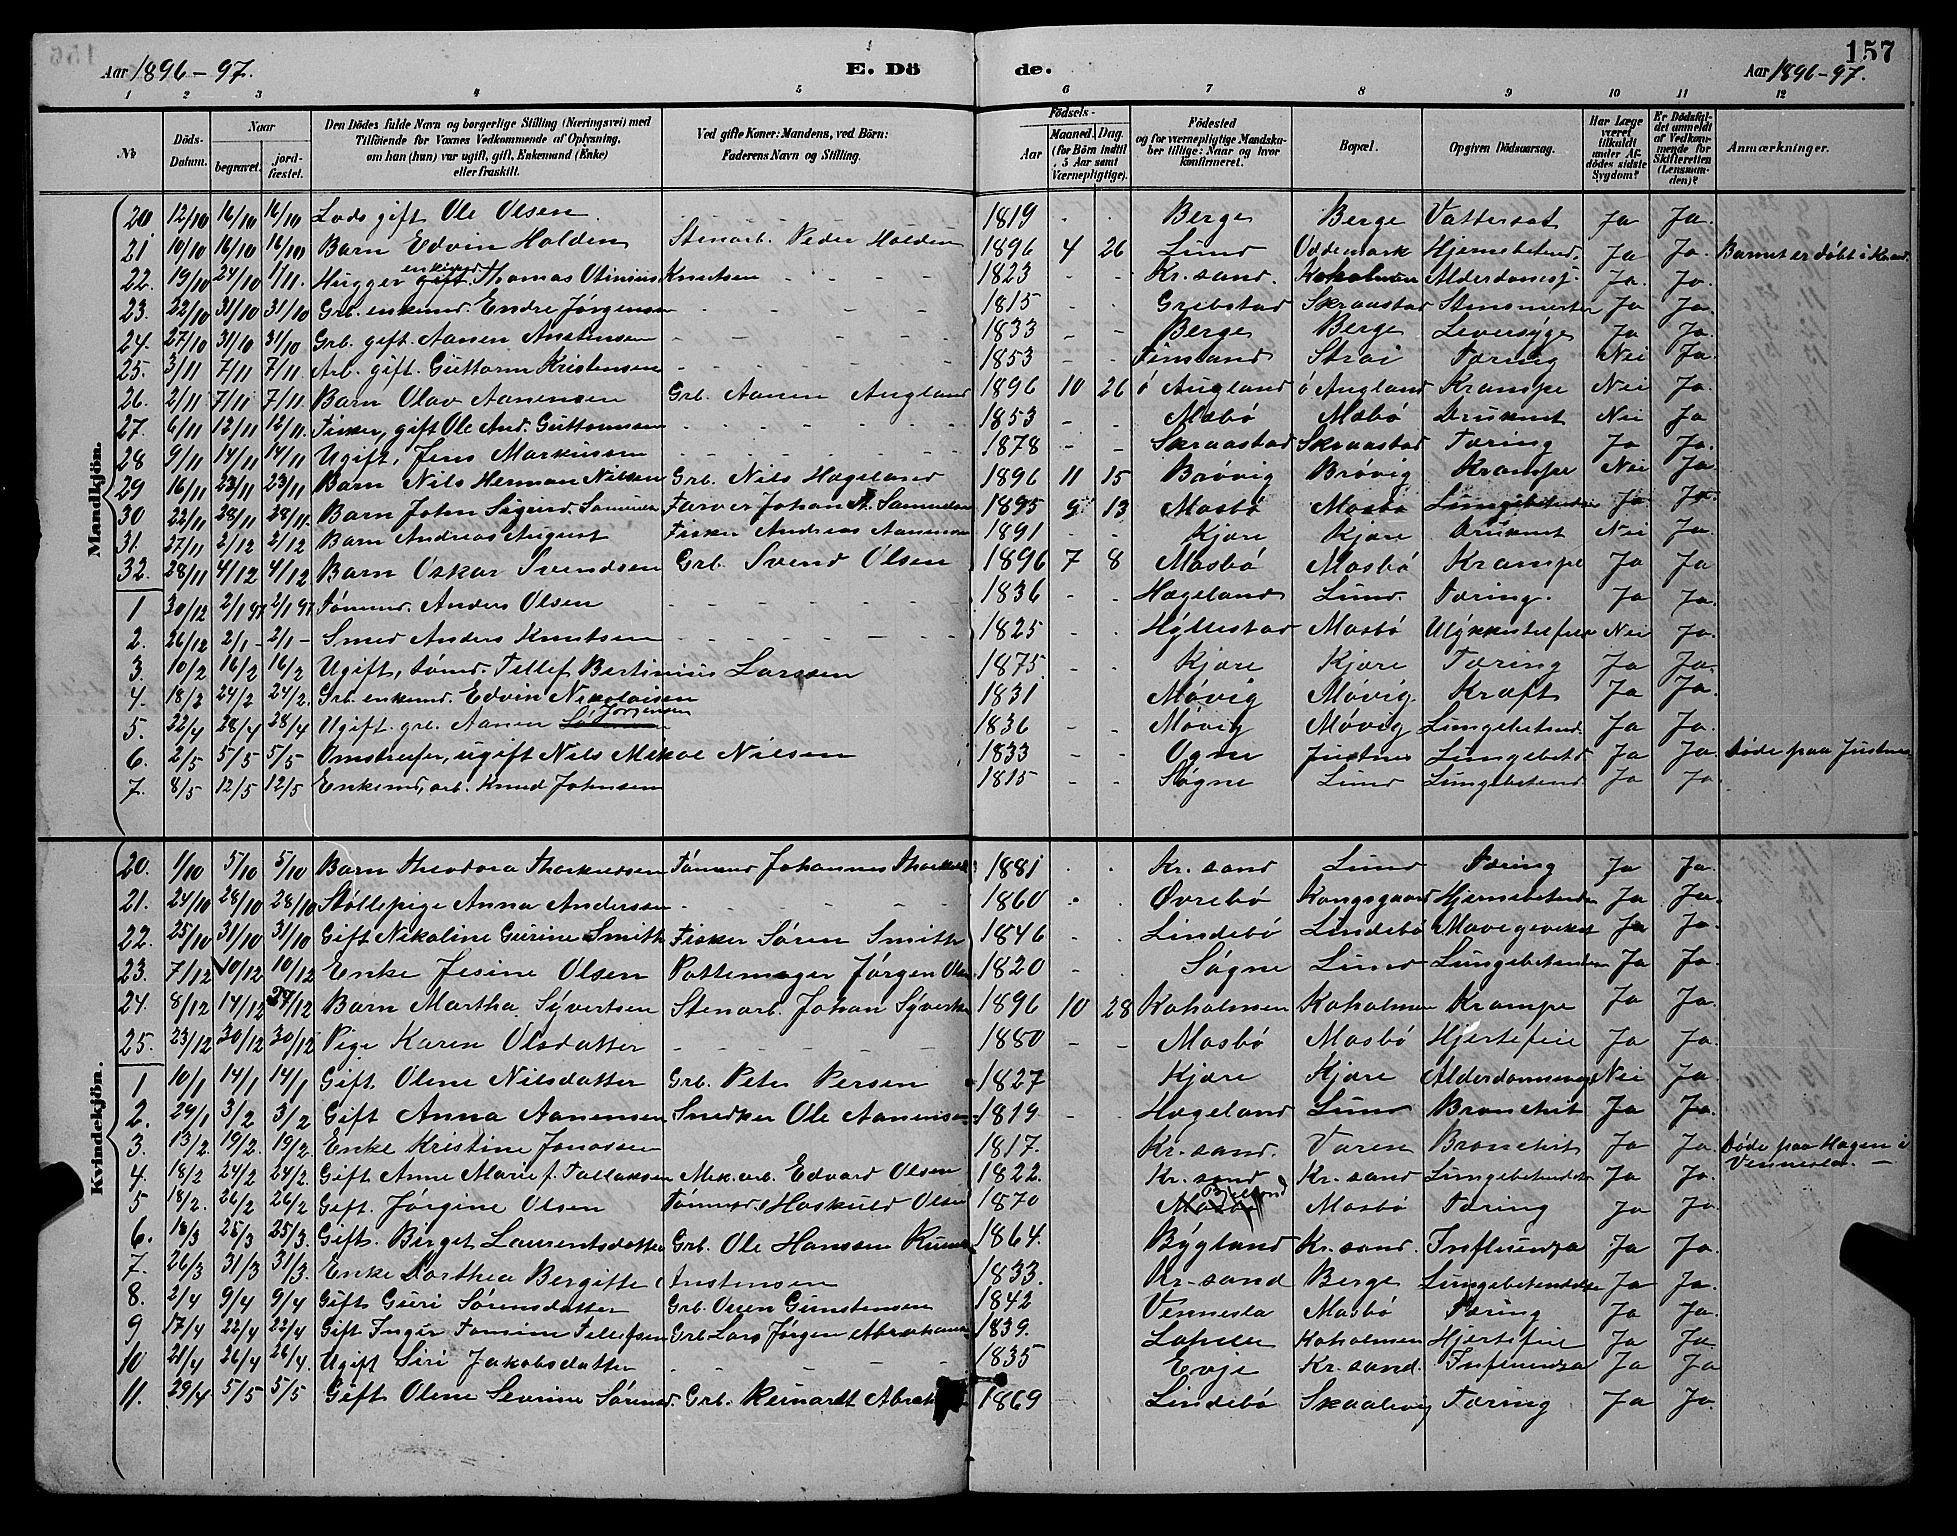 156
Aar 1896-97.
E. Dö
de.
157
Aar 1896-97.
1 2 3 4 5 6 7 8 9 10 11 12
No Döds-Datum. Naar begravet. jordfæstet. Den Dödes fulde Navn og borgerlige Stilling (Næringsvei) med Tilföiende for Voxnes Vedkommende af Oplysning, om han (hun) var ugift, gift, Enkemand (Enke) eller fraskilt. Ved gifte Koner: Mandens, ved Börn: Faderens Navn og Stilling. Födsels- Aar Maaned. Dag. (for Börn indtil 5 Aar samt Værnepligtige). Födested og for værnepligtige Mandskaber tillige: Naar og hvor konfirmeret. Bopæl. Opgiven Dödsaarsag. Har Læge været tilkaldt under Afdödes sidste Sygdom? Er Dödsfaldet anmeldt af Vedkommende for Skifteretten (Lensmanden)? Anmærkninger.
Mandkjön.
20 12/10 16/10 16/10 Lods gift Ole Olsen 1819 - - Berge Berge Vattersot Ja Ja.
21 10/10 16/10 16/10 Barn Edvin Holden Stenarb. Peder Holden 1896 4 26 Lund Uddemark Hjernebetend. Ja Ja. Barnet er döbt i Krsand.
22. 19/10 24/10 1/11. Hugger enkemd. gift Thomas Otinius Knutsen 1823 - - Kr.sand. Koholmen Alderdomssj. Ja. Ja.
23. 22/10 31/10 31/10 Grb. enkemd. Endre Jörgensen 1815 - - Grebstad Skraastad Stensmerter Ja Ja.
24. 27/10 31/10 31/10 Grb. gift Aanen Anstensen 1833 - - Berge Berge Leversyge Ja Ja.
25. 3/11 7/11 7/11. Arb. gift. Guttorm Kristensen 1853 - - Finsland Strai Tæring Nei Ja.
26. 2/11 7/11 7/11. Barn Olav Aanensen Grb. Aanen Augland 1896 10 26 ö Augland ö Augland Krampe Nei Ja.
27. 6/11 12/11 12/11. Fisker, gift Ole And. Guttormsen 1853 - - Mæbö Mæbö Druknet Nei Ja
28 9/11 14/11 14/11 Ugift, Jens Markussen 1878 - - Skraastad Skraastad Tæring Ja Ja.
29 16/11 23/11 23/11 Barn Nils Herman Nilsen Grb. Nils Hægeland 1896 11 15 Brövig Brövig Krampe Nei Ja
30 22/11 28/11 28/11. Barn John Sigurd Samuelsen Farver Johan A. Samuelsen 1895 9 13 Mosbö Mosbö Ja Ja
31. 27/11 2/12 2/12 Barn Andreas August Fisker Andreas Aanensen 1891 - - Kjære Kjære Druknet Nei Ja.
32. 28/11 4/12 4/12 Barn Oskar Svendsen Grb. Svend Olsen 1896 7 8 Mosbö Mosbö Krampe Ja Ja
1 30/12 2/1 97 2/1 97 Tömmd. Anders Olsen 1836 - - Hægeland Lund. Tæring. Ja Ja.
2. 26/12 2/1 - 2/1 - Smed Anders Knutsen 1825 - - Hyllestad Mosbö Ulykkestilfelde Nei Ja.
3. 10/2 16/2 16/2 Ugift, Tömd. Tellef Bertinius Larssen 1875. - - Kjære Kjære Tæring Ja Ja.
4. 18/2 24/2 24/2 Grb. enkemd. Edvin Nikolaisen 1831 - - Mövig Mövig Kræft Ja Ja
5. 22/4 28/4 28/4 Ugift. grb. Aanen Jörgensen 1836 - - Mövig Mövig Lungebetænd. Ja Ja.
6. 2/5 5/5 5/5 Omstreifer, ugift Nils Mikal Nilsen 1833 - - Ogne Justnes Lungebetd Ja Ja. Döde paa Justnes
7. 8/5 12/5 12/5 Enkemd, arb. Knud Johnsen 1815 - - Sögne Lund Lungebetend. Ja Ja.
Kvindekjön.
20. 1/10 5/10 5/10 Barn Theodora Thorkildsen Tömmd Johannes 1881 . . Kr. sand Lund Tæring Ja Ja.
21. 24/10 28/10 28/10 Stöllepige Anna Anderssen 1860 . . Övrebö Kongsgaard Hjernebetend. Ja Ja.
22. 25/10 31/10 31/10 Gift Nikoline Gurine Smith Fisker Sören Smith 1846 - - Lindebö Lindebö Ja Ja.
23. 7/12 10/12 10/12 Enke Jesine Olsen Pottemager Jörgen Olsen 1820 - - Sögne Lund Lungebetenden Ja Ja.
24. 8/12 14/12 27/12 Barn Martha Syvertsen Stenarb. Johan Syvertsen 1896 10 28 Koholmen Koholmen Krampe Ja Ja.
25. 23/12 30/12 30/12 Pige Karen Olsdatter 1880 - - Mosbö Mosbö Hjertefeil Ja Ja.
1 10/1 14/1 14/1 Gift Olene Nilsdatter Grb. Peter Persen 1827 - - Kjære Kjære Nei Ja.
2. 29/1 3/2 3/2 Gift Anna Aanensen Snedker Ole Aanensen 1819 - - Hægeland Lund Bronchit Ja Ja.
3. 13/2. 19/2. 19/2 Enke Kristine Jonassen 1817. Kr. sand. Varen Bronchit Ja Ja. Döde paa Hagen i Vennesla. -
4 18/2 24/2 24/2 Gift Anne Marie f. Tallaksen Mek. arb. Edvard Olsen 1822. Kr. sand Kr. sand Ja Ja.
5 18/2. 26/2 26/2 Gift. Jörgine Olsen Tömmd Haskuld Olsen 1870 Mosbö Mosbö Tæring Ja Ja.
6. 18/3 25/3 25/3. Gift. Birget Laurentsdatter Grb. Ole Hanssen 1864. Bygland Kr. sand. Influenza Ja Ja.
7. 26/3 31/3 31/3. Enke Dorthea Bergitte Anstensen 1833. Kr. sand Berge Ja Ja.
8. 2/4 9/4 9/4 Gift Guri Sörensdatter Grb. Osen Gunstensen 1842 Vennesla Mosbö Tæring Ja Ja.
9 17/4 22/4 22/4 Gift Inger Tomine Tellefsen Grb. Lars Jörgen Abrahamsen 1839. Koholmen Hjertefeil Ja Ja.
10 21/4 26/4 26/4 Ugift Siri Jakobsdatter 1835 Evje Kr. sand. Influenza Ja Ja
11. 29/4 5/5 5/5 Gift Olene Severine Sörensd. Grb. Reinardt 1869 Lindebö Skaalevig Tæring Ja Ja.